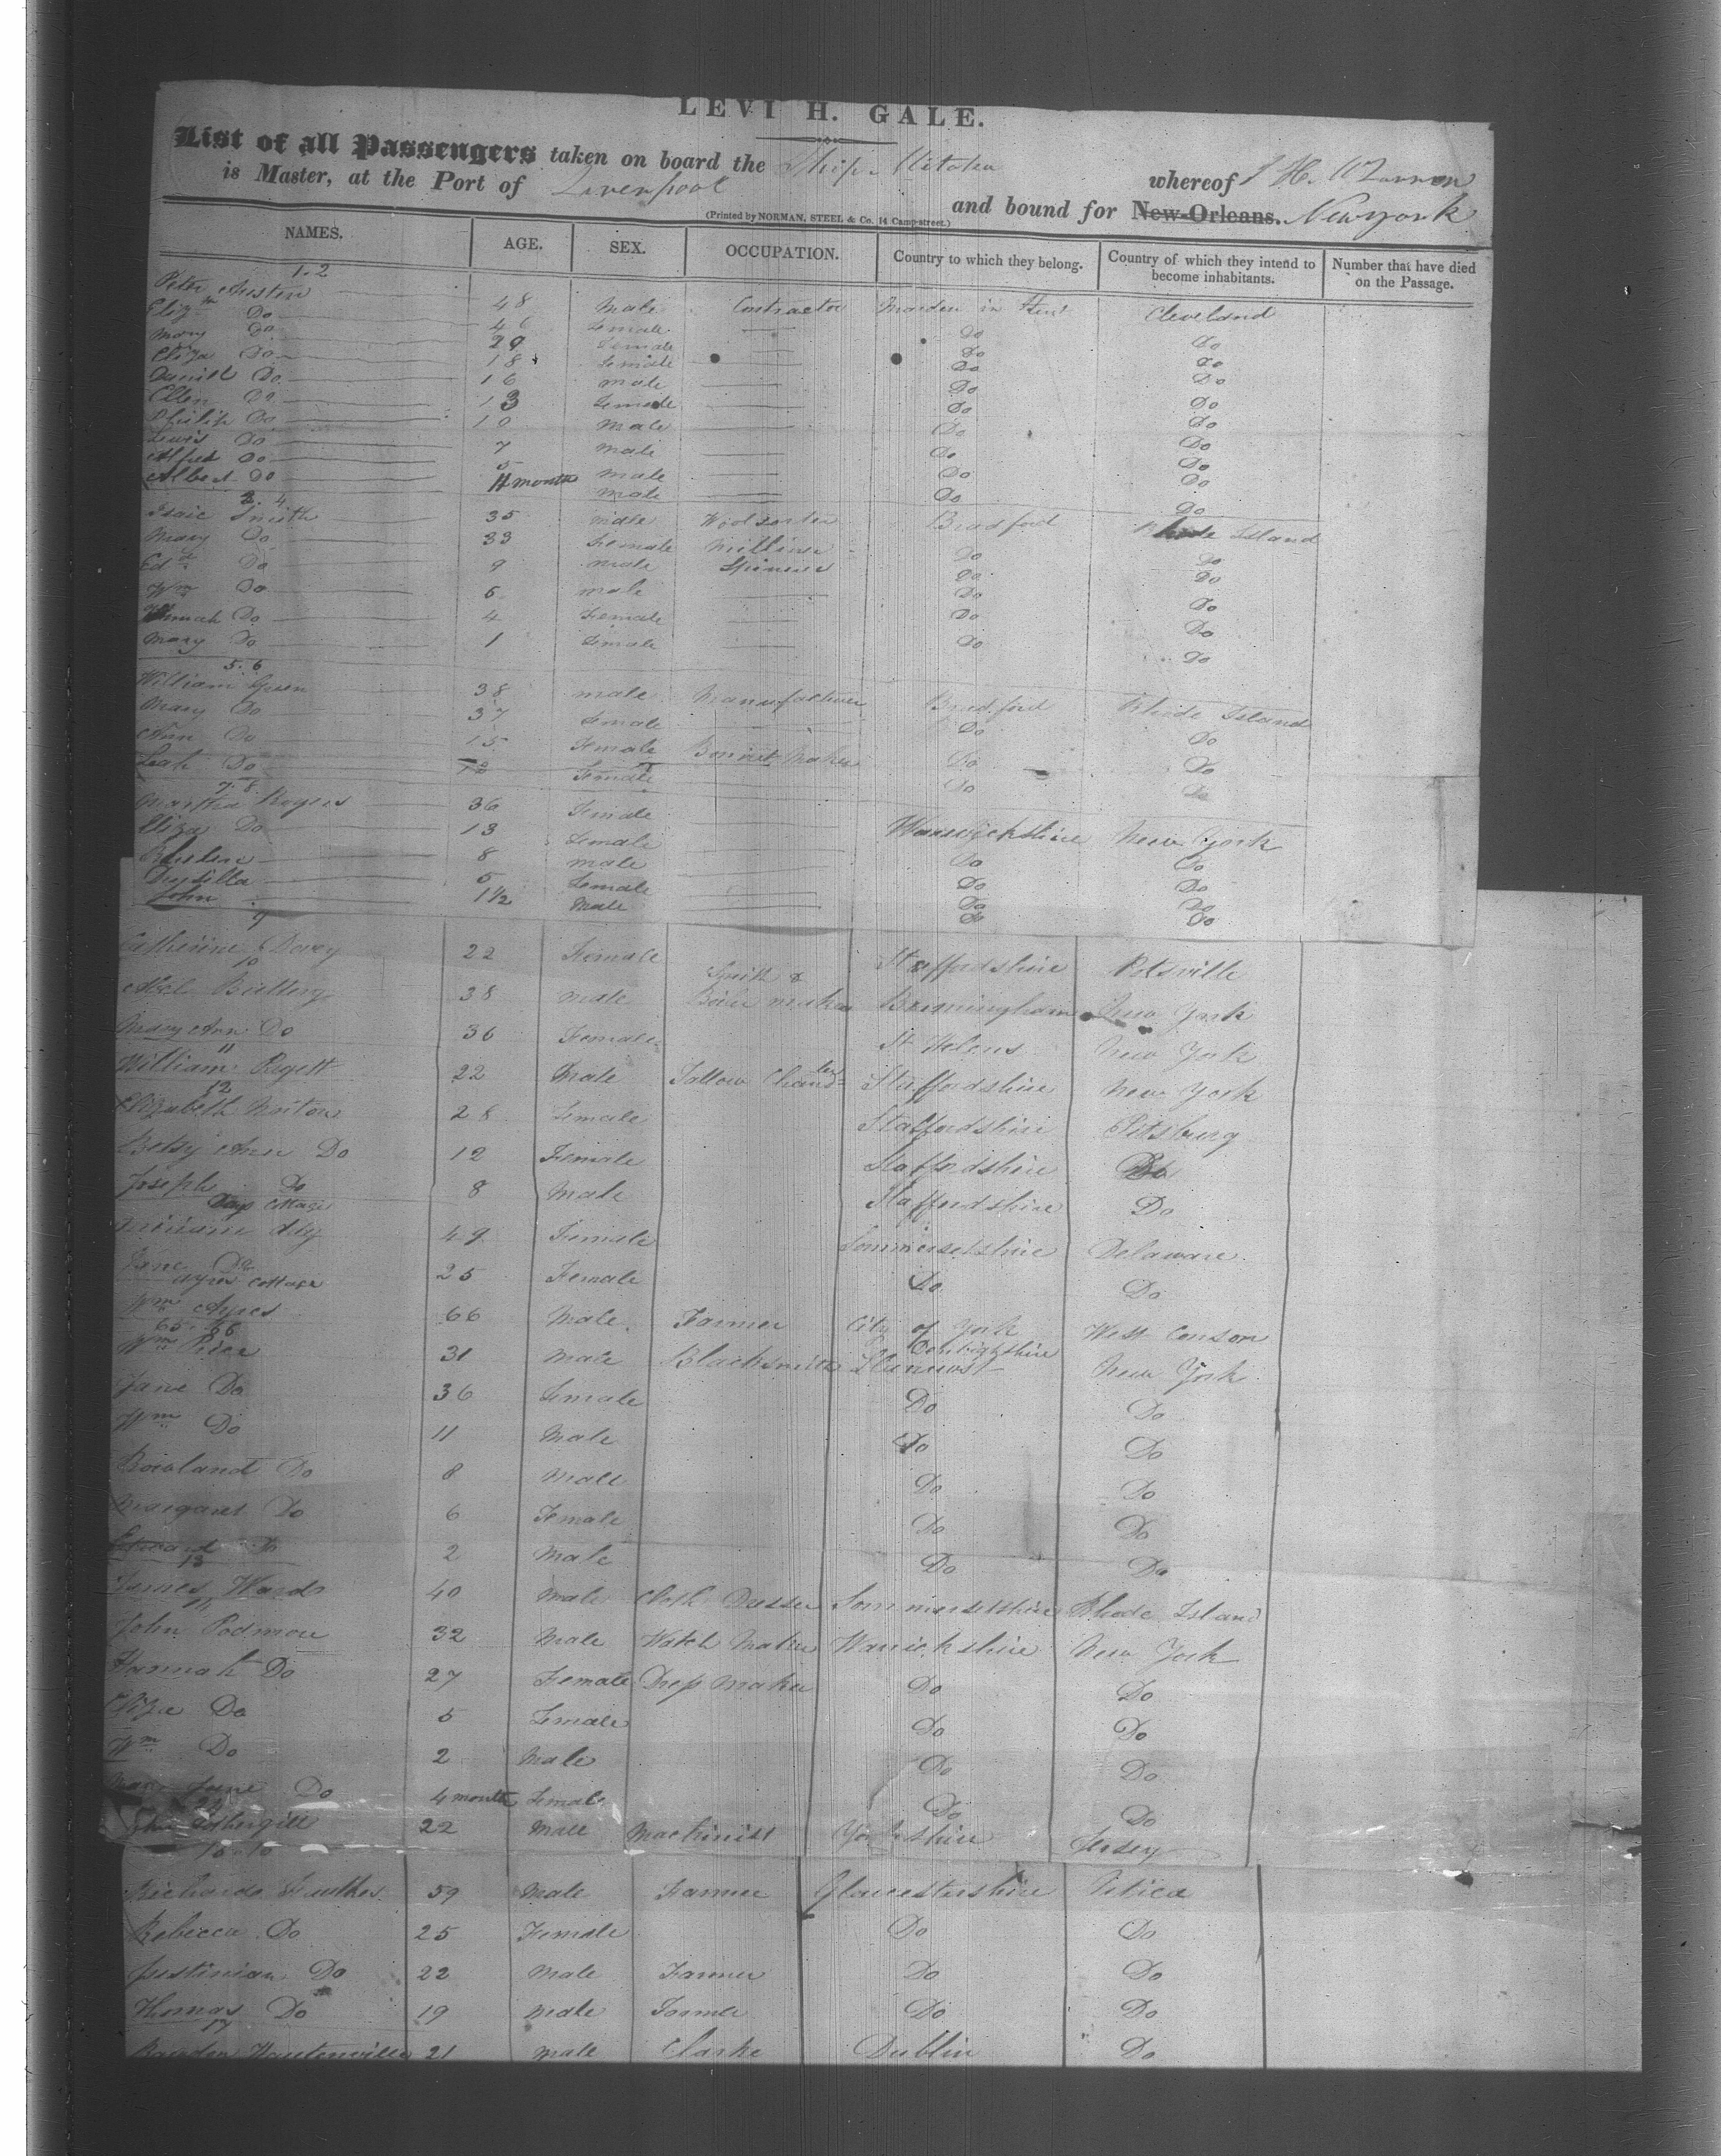 LEVI H. GALE.
List of all Passengers taken on board the Ship whereof J H.
is Master, at the Port of Liverpool and bound for New-Orleans. New york
(Printed by NORMAN, STEEL & Co. 14 Camp-street.)
NAMES. AGE. SEX. OCCUPATION. Country to which they belong. Country of which they intend to become inhabitants. Number that have died on the Passage.
1-2
Peter Austin 48 Male Contractor Marden in Kent Cleveland
Elizth Do 46 Female Do Do
Mary Do 20 Female Do Do
Eliza Do 18 Female Do Do
Daniel Do 16 male Do Do
Ellen Do 13 Female Do Do
Philip Do 10 Male Do Do
Lewis Do 7 male Do Do
Alfred Do 5 male Do Do
Albert Do 11 month male Do Do
3.4
Isaic Smith 35 male Woolsorter Bradford Rhode Island
Mary Do 33 Female Milliner Do Do
Edd Do 9 male Do Do
Wm Do 6 male Do Do
Do 4 Female Do Do
Mary Do 1 Female Do Do
5.6
William Green 38 male Manufacturer Bradford Rhode Island
Mary Do 37 Female Do Do
Ann Do 15 Female Bonnet Maker Do Do
Leah Do 12 Female Do Do
7.8
Martha Rogers 36 Female Warwickshire New York
Eliza Do 13 Female Do Do
8 male Do Do
Drusilla 5 Female Do Do
John 1 1/2 Male Do Do
9
Catherine Dovey 22 Female Staffordshire Potsville
10
Abel Buttery 38 male Smith & Boiler maker Birmingham New York
Mary Ann Do 36 Female St Helens New York
11
William Pigett 22 Male Tallow Chandler Staffordshire New York
12
Elizabeth Norton 28 Female Staffordshire Pittsburg
Betsy Ann Do 12 Female Staffordshire Do
Joseph Do 8 Male Staffordshire Do
Days Cottage
49 Female Sommersetshire Delaware
Jane Do 25 Female Do Do
Ayres Cottage
Wm Ayres 66 Male Farmer City of York West Conson
65.66
Wm 31 Male Blacksmith Denbighshire New York
Jane Do 36 Female Do Do
Wm Do 11 Male Do Do
Rowland Do 8 Male Do Do
Margaret Do 6 Female Do Do
Edward Do 2 Male Do Do
13
James Wards 40 Male Cloth Dresser Sommersetshire Rhode Island
14
John Podmore 32 Male Watch Maker Warrickshire New York
Hannah Do 27 Female Dress Maker Do Do
Eliza Do 5 Female Do Do
Wm Do 2 Male Do Do
Mary Jane Do 4 month Female Do Do
22 Male Machinist Yorkshire Jersey
Richards 59 Male Farmer Gloucestershire Utica
Rebecca Do 25 Female Do Do
Justinian Do 22 Male Farmer Do Do
Thomas Do 19 Male Farmer Do Do
17
21 Male Clarke Dublin Do